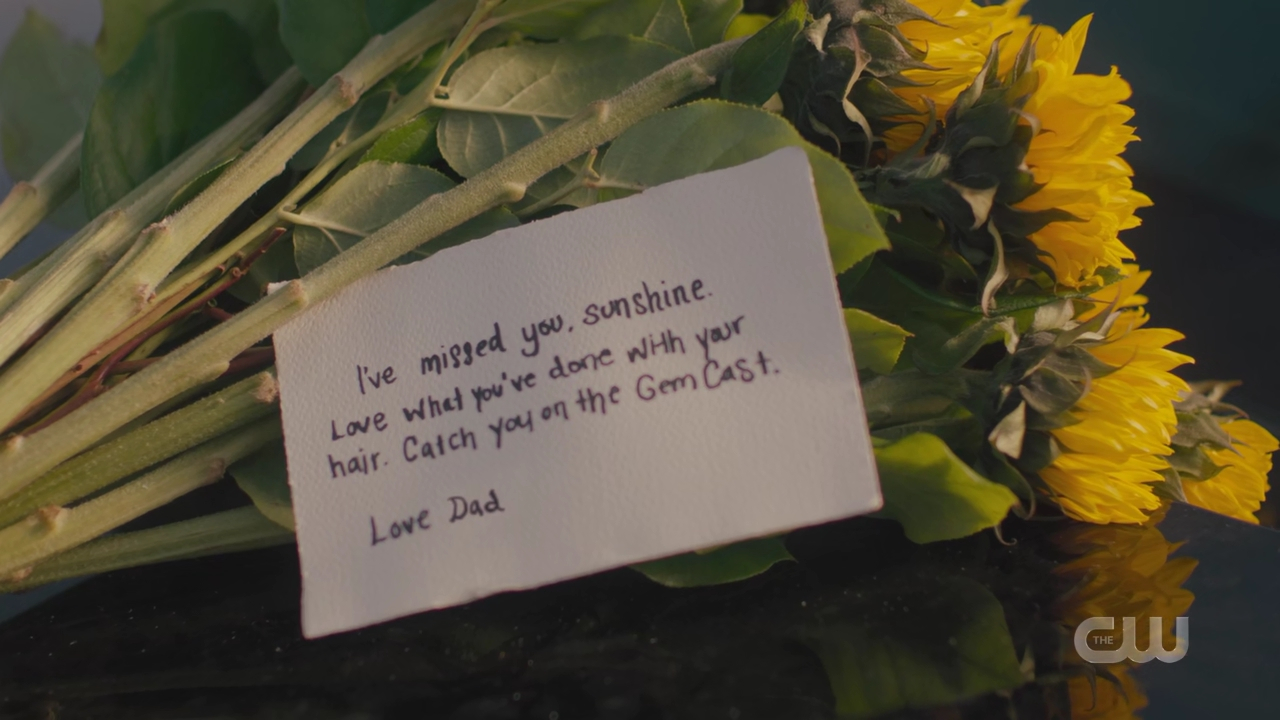 I've missed you, sunshine.
Love what you've done with your
hair. Catch you on the Gem Cast.
Love Dad
THE CW